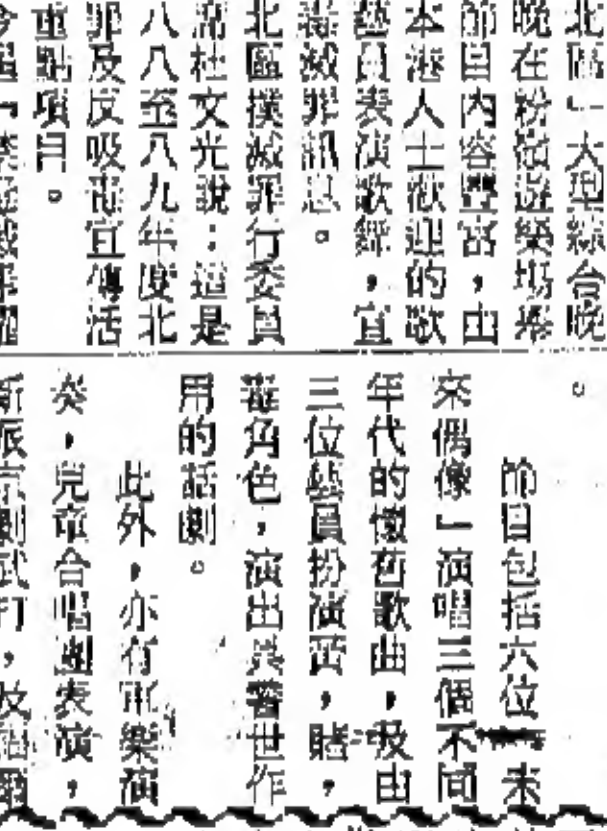 北區﹂大型綜合晚
晚在粉嶺遊樂場舉
節目內容豐富，由
本港人士歡迎的歌
藝員表演歌舞，宣
毒滅罪訊息。
北區撲滅罪行委員
席杜文光說：這是
八八至八九年度北
罪及反吸毒宣傳活
重點項目。
今屆﹁禁毒滅罪
。
節目包括六位﹁未
來偶像﹂演唱三個不同
年代的懷舊歌曲，及由
三位藝員扮演黃，賭，
毒角色，演出具警世作
用的話劇。
此外，亦有軍樂演
奏，兒童合唱團表演，
新派京劇武打，及福爾